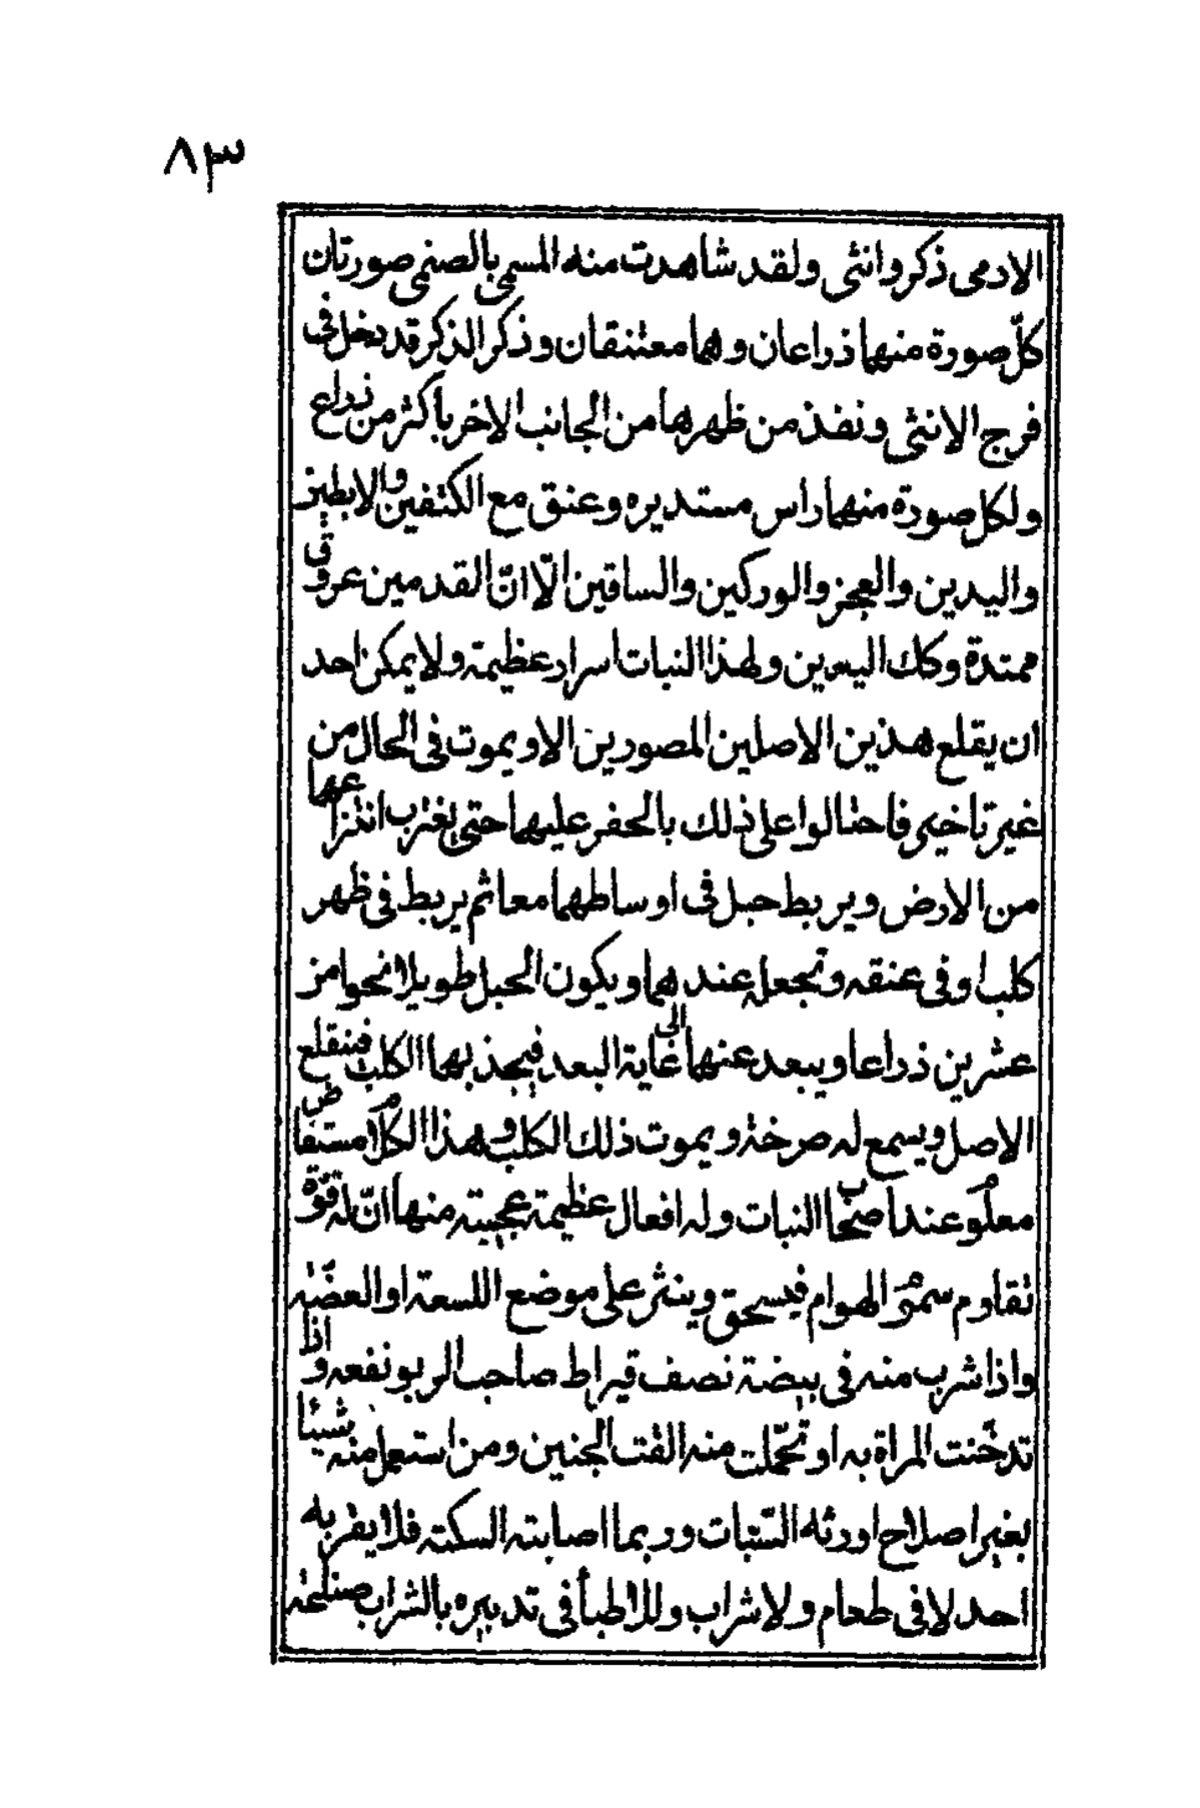 ٨٣
الادمى ذكر وانثى ولقد شاهدت منه المسمى بالصنمى صورتان
كلّ صورة منهما ذراعان وهما معتنقان وذكر الذكر قد دخل فى
فرج الانثى ونفذ من ظهرها من الجانب الاخر باكثر من ذراع
ولكل صورة منهما راس مستديره وعنق مع الكتفين والابطين
واليدين والعجز والوركين والساقين الّا انّ القدمين عروق
ممتدة وكك اليدين ولهذا النبات اسرار عظيمة ولا يمكن احد
ان يقلع هذين الاصلين المصورين الا ويموت فى الحال من
غير تاخير فاحتالوا على ذلك بالحفر عليهما حتى يقترب انتزاعهما
من الارض ويربط حبل فى اوساطهما معا ثم يربط فى ظهر
كلب او فى عنقه وتجعله عندهما ويكون الحبل طويلا نحوا من
عشرين ذراعا ويبعد عنهما الى غاية البعد فيجذبهما الكلب فينقلع
الاصل ويسمع له صرخة ويموت ذلك الكلب وهذا الكلام مستفاض
معلوم عند اصحاب النبات وله افعال عظيمة عجيبة منها انّ له قوّة
تقاوم سموم الهوام فيسحق وينثر على موضع اللسعة او العضّة
واذا شرب منه فى بيضة نصف قيراط صاحب الربو نفعه واذا
تدخّنت المراة به او تحمّلت منه القت الجنين ومن استعمل منه شيئا
بغير اصلاح اورثه السّبات وربما اصابته السكتة فلا يقربه
احد لا فى طعام ولا شراب وللاطبأ فى تدبيره بالشراب